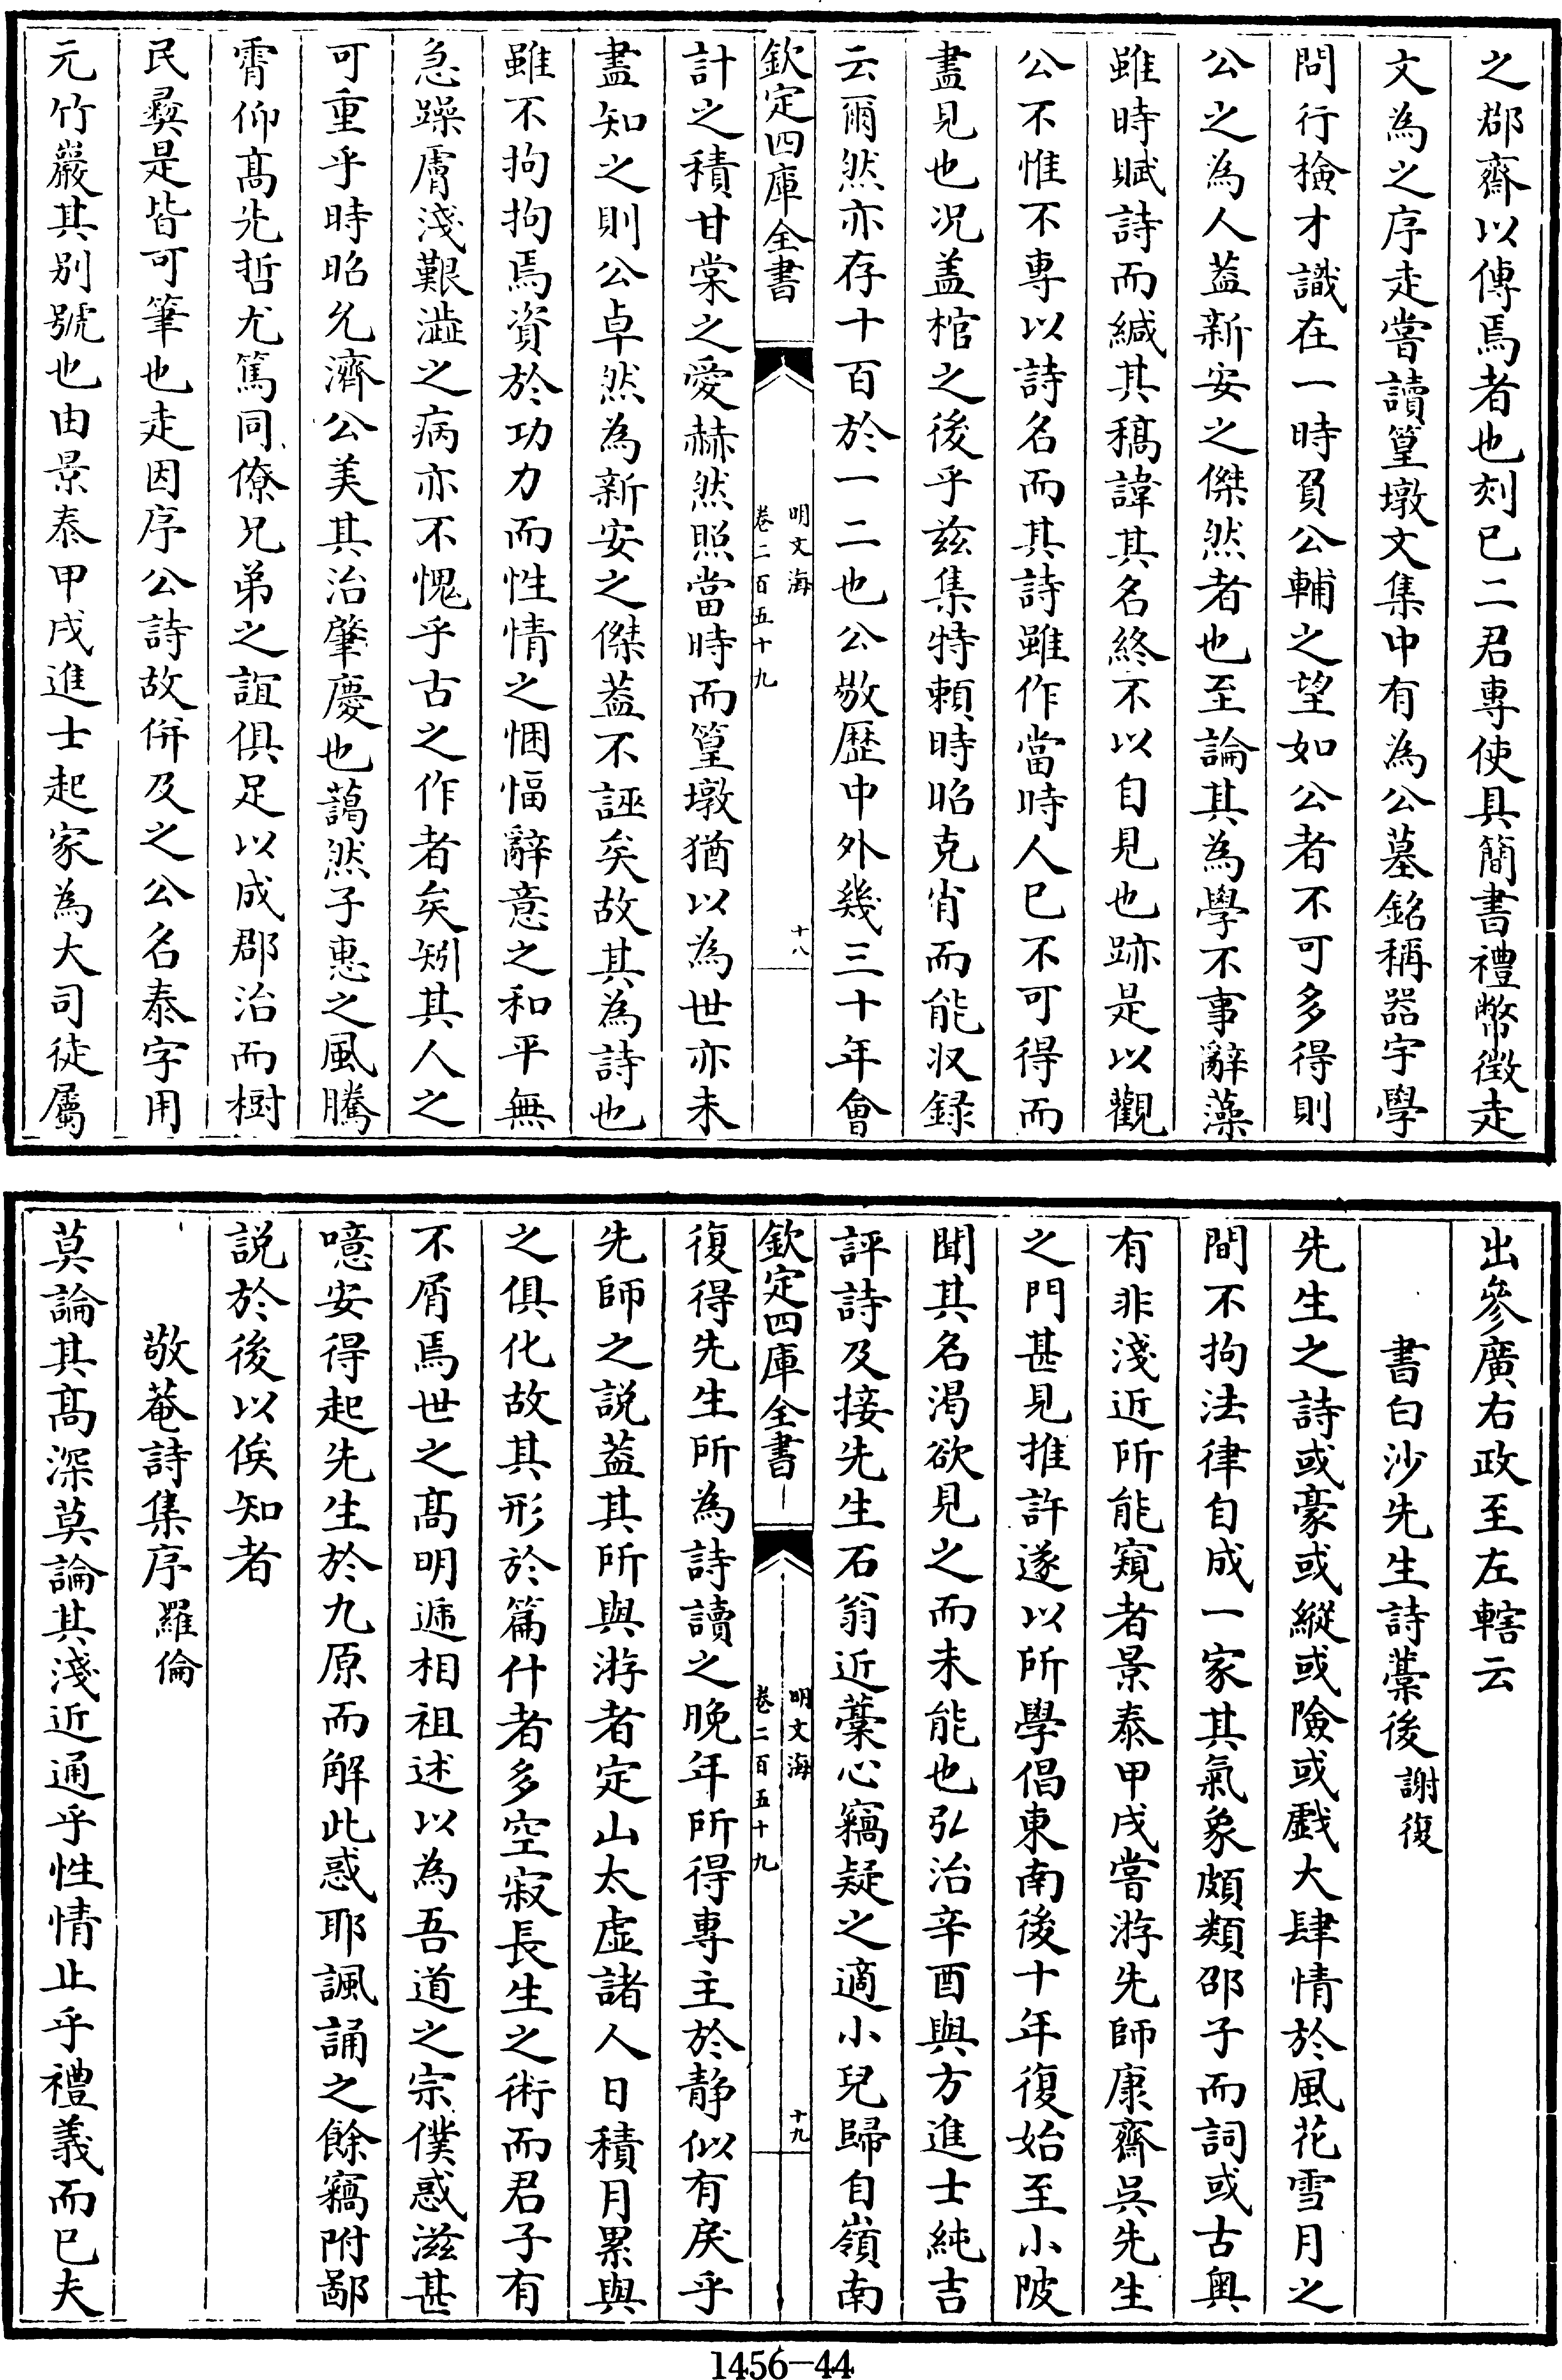 之郡齋以傳焉者也刻已二君專使具簡書禮幣徴走
文為之序走嘗讀篁墩文集中有為公墓銘稱器宇學
問行檢才識在一時負公輔之望如公者不可多得則
公之為人葢新安之傑然者也至論其為學不事辭藻
雖時賦詩而緘其稿諱其名終不以自見也跡是以觀
公不惟不專以詩名而其詩雖作當時人已不可得而
盡見也况盖棺之後乎兹集特頼時昭克肖而能収録
云爾然亦存十百於一二也公敭歴中外幾三十年會
欽定四庫全書
明文海
卷二百五十九
十八
計之積甘棠之愛赫然照當時而篁墩猶以為世亦未
盡知之則公卓然為新安之傑葢不誣矣故其為詩也
雖不拘拘焉資於功力而性情之悃愊辭意之和平無
急躁膚淺艱澁之病亦不愧乎古之作者矣矧其人之
可重乎時昭允濟公美其治肇慶也藹然子惠之風騰
霄仰髙先哲尤篤同僚兄弟之誼俱足以成郡治而樹
民彛是皆可筆也走因序公詩故併及之公名泰字用
元竹巖其别號也由景泰甲戌進士起家為大司徒屬
出參廣右政至左轄云
書白沙先生詩藁後謝復
先生之詩或豪或縱或險或戯大肆情於風花雪月之
間不拘法律自成一家其氣象頗類邵子而詞或古奥
有非淺近所能窺者景泰甲戌嘗游先師康齋吳先生
之門甚見推許遂以所學倡東南後十年復始至小陂
聞其名渇欲見之而未能也弘治辛酉與方進士純吉
評詩及接先生石翁近藁心竊疑之適小兒歸自嶺南
欽定四庫全書
明文海
卷二百五十九
十九
復得先生所為詩讀之晚年所得專主於静似有戾乎
先師之説葢其所與游者定山太虚諸人日積月累與
之俱化故其形於篇什者多空寂長生之術而君子有
不屑焉世之髙明遞相祖述以為吾道之宗僕惑滋甚
噫安得起先生於九原而解此惑耶諷誦之餘竊附鄙
説於後以俟知者
敬菴詩集序羅倫
莫論其髙深莫論其淺近通乎性情止乎禮義而已夫
1456-44